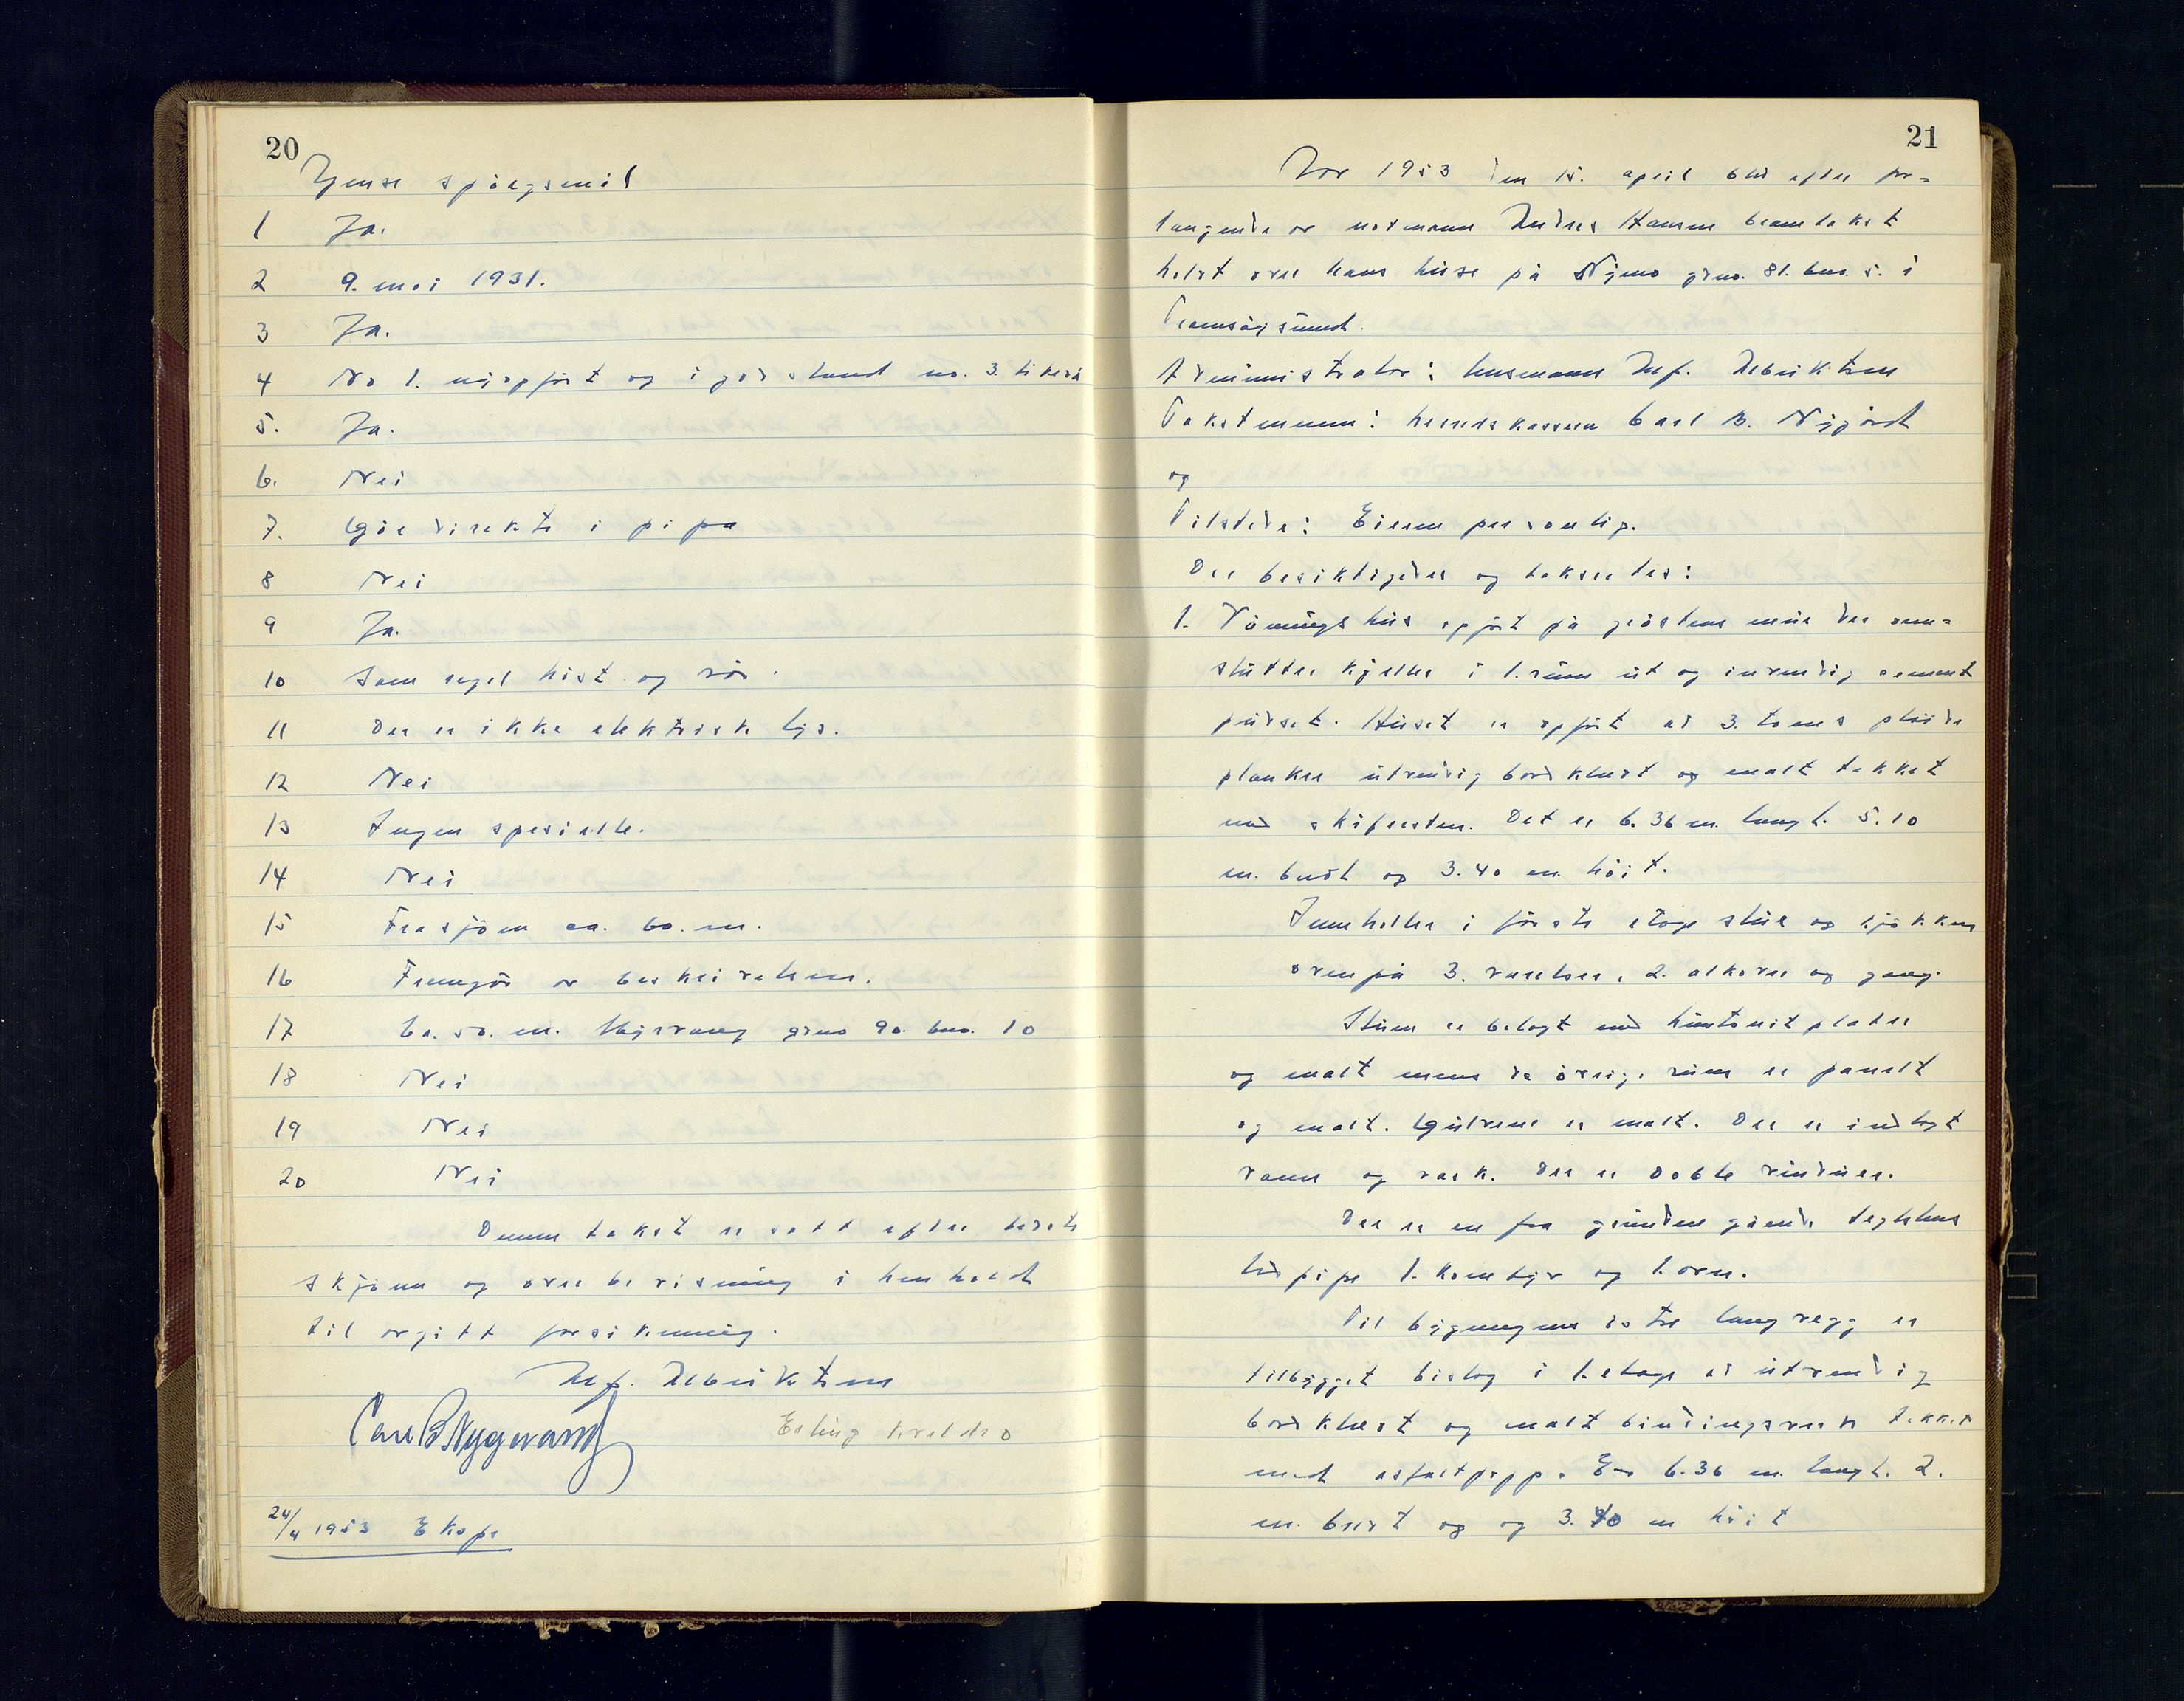 20
spörgsmål
1 Ja.
2 9. mai 1931.
3 Ja.
4 No 1. nyoppført og i god stand no. 3. likeså
5. Ja.
6. Nei
7. Går direkte i pipa
8 Nei
9 Ja.
10 Som regel höst og vår.
11 Der er ikke elektrisk lys.
12 Nei
13 Ingen spesielle.
14 Nei
15 Fra sjöen ca. 60. m.
16 Fremgår av beskrivelsen.
17 Ca. 50. m. gno 90. bno. 10
18 Nei
19 Nei
20 Nei
Denne takst er satt efter beste
skjönn og overbevisning i henhold
til avgitt forsikring.
Alf. Albriktsen
Carl B Nygaard
Erling
24/4 1953 E kopi
21
År 1953 den 15. april blev efter for-
langende av notmann Andreas Hansen branntakst
holdt over hans huse på gno. 81. bno. 5. i
Tromsöysund.
Administrator: lensmann Alf. Albriktsen
Takstmenn: herredskasserer Carl B. Nygård
og
Tilstede: Eieren personlig.
Der besiktigedes og taksertes:
1. Våningshus opfört på gråstens mur der om-
slutter kjeller i 1. rum ut og invendig cement
pudset. Huset er opfört av 3. toms plöide
planker utvendig bordklædt og malt tekket
med skifersten. Det er 6.36 m. langt. 5.10
m. bredt og 3.40 m. höit.
Inneholder i förste etage stue og kjökken
ovenpå 3. værelser, 2. alkover og gang.
Stuen er belagt med huntonit plater
og malt mens de övrige rum er panelt
og malt. Gulvene er malt. Der er indlagt
vann og vask. Der er doble vinduer.
Der er en fra grunden gående teglstens
löd pipe 1. komfyr og 1. ovn.
Til bygningens östre langvegg er
tilbygget bislag i 1. etage av utvendig
bordklædt og malt bindingsverk tekket
med asfaltpapp. Er 6.36 m. langt. 2.
m. bredt og og 3.40 m höit